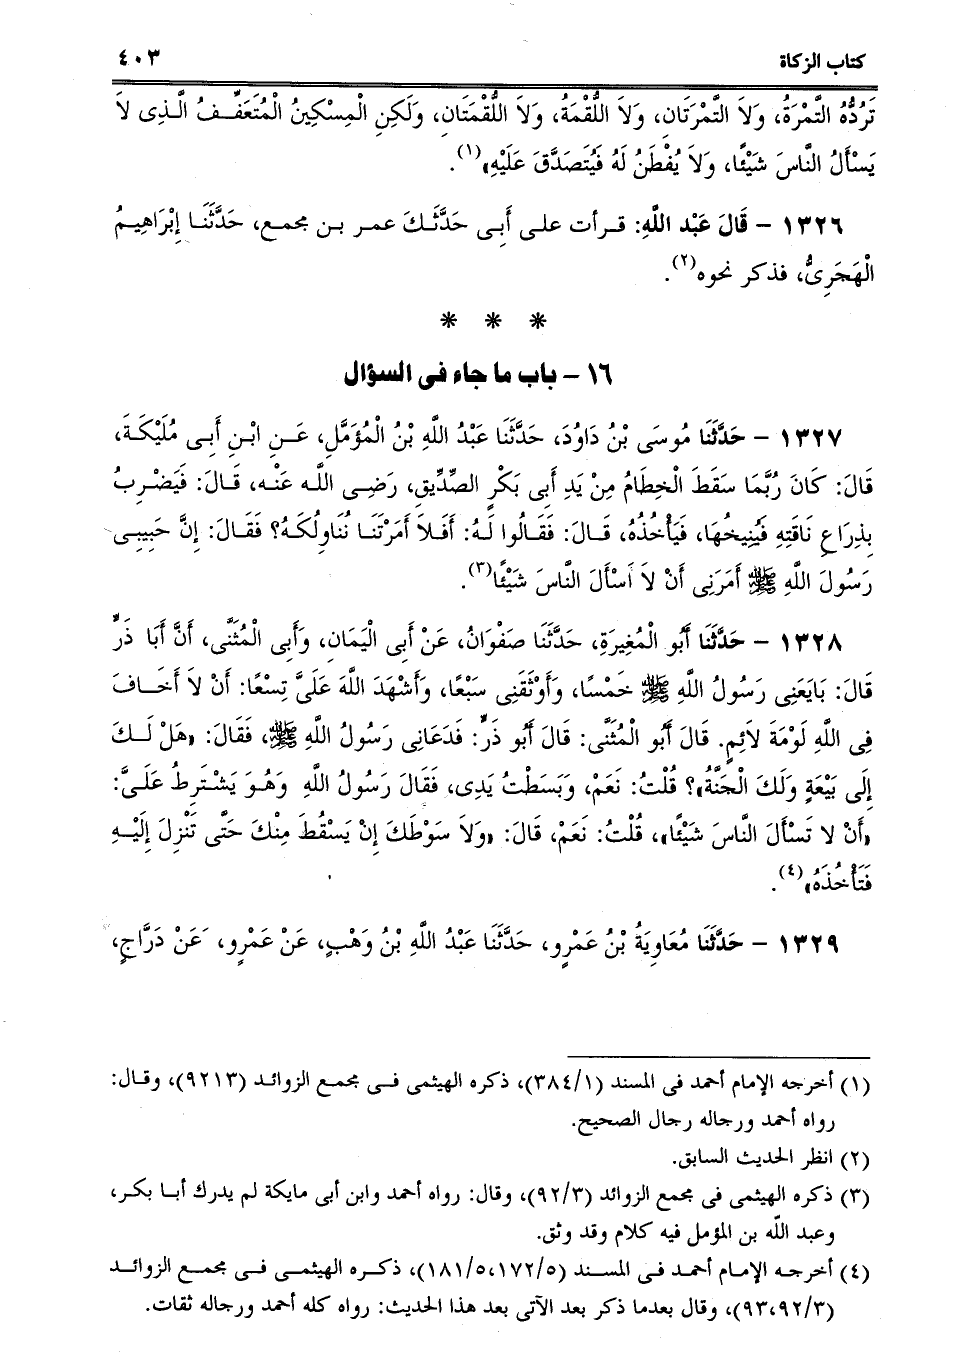 كتاب الزكاة ٤٠٣
تَرُدُّهُ التَّمْرَةُ، وَلاَ التَّمْرَتَان، وَلاَ اللُّقْمَةُ، وَلاَ اللُّقْمَتَان، وَلَكِنِ الْمِسْكِينُ الْمُتَعَفِّفُ الَّذِى لاَ
يَسْأَلُ النَّاسَ شَيْئًا، وَلاَ يُفْطَنُ لَهُ فَيُتَصَدَّقَ عَلَيْهِ»(١).
١٣٢٦ – قَالَ عَبْد اللَّهِ: قرأت على أَبِى حَدَّثَكَ عمر بن مجمع، حَدَّثَنَا إِبْرَاهِيمُ
الْهَجَرِىُّ، فذكر نحوه(٢).
* * *
١٦ – باب ما جاء فى السؤال
١٣٢٧ – حَدَّثَنَا مُوسَى بْنُ دَاوُدَ، حَدَّثَنَا عَبْدُ اللَّهِ بْنُ الْمُؤَمَّلِ، عَنِ ابْنِ أَبِى مُلَيْكَةَ،
قَالَ: كَانَ رُبَّمَا سَقَطَ الْخِطَامُ مِنْ يَدِ أَبِى بَكْرٍ الصِّدِّيقِ، رَضِى اللَّه عَنْه، قَالَ: فَيَضْرِبُ
بِذِرَاعِ نَاقَتِهِ فَيُنِيخُهَا، فَيَأْخُذُهُ، قَالَ: فَقَالُوا لَهُ: أَفَلاَ أَمَرْتَنَا نُنَاوِلُكَهُ؟ فَقَالَ: إِنَّ حَبِيبِى
رَسُولَ اللَّهِ ﷺ أَمَرَنِى أَنْ لاَ أَسْأَلَ النَّاسَ شَيْئًا(٣).
١٣٢٨ – حَدَّثَنَا أَبُو الْمُغِيرَةِ، حَدَّثَنَا صَفْوَانُ، عَنْ أَبِى الْيَمَانِ، وَأَبِى الْمُثَنَّى، أَنَّ أَبَا ذَرٍّ
قَالَ: بَايَعَنِى رَسُولُ اللَّهِ ﷺ خَمْسًا، وَأَوْثَقَنِى سَبْعًا، وَأَشْهَدَ اللَّهَ عَلَىَّ تِسْعًا: أَنْ لاَ أَخَافَ
فِى اللَّهِ لَوْمَةَ لاَئِمٍ. قَالَ أَبُو الْمُثَنَّى: قَالَ أَبُو ذَرٍّ: فَدَعَانِى رَسُولُ اللَّهِ ﷺ، فَقَالَ: «هَلْ لَكَ
إِلَى بَيْعَةٍ وَلَكَ الْجَنَّةُ»؟ قُلْتُ: نَعَمْ، وَبَسَطْتُ يَدِى، فَقَالَ رَسُولُ اللَّهِ وَهُوَ يَشْتَرِطُ عَلَىَّ:
«أَنْ لا تَسْأَلَ النَّاسَ شَيْئًا»، قُلْتُ: نَعَمْ، قَالَ: «وَلاَ سَوْطَكَ إِنْ يَسْقُطَ مِنْكَ حَتَّى تَنْزِلَ إِلَيْهِ
فَتَأْخُذَهُ»(٤).
١٣٢٩ – حَدَّثَنَا مُعَاوِيَةُ بْنُ عَمْرٍو، حَدَّثَنَا عَبْدُ اللَّهِ بْنُ وَهْبٍ، عَنْ عَمْرٍو، عَنْ دَرَّاجٍ،
(١) أخرجه الإمام أحمد فى المسند (٣٨٤/١)، ذكره الهيثمى فى مجمع الزوائد (٩٢١٣)، وقال:
رواه أحمد ورجاله رجال الصحيح.
(٢) انظر الحديث السابق.
(٣) ذكره الهيثمى فى مجمع الزوائد (٩٢/٣)، وقال: رواه أحمد وابن أبى مايكة لم يدرك أبا بكر،
وعبد اللّه بن المؤمل فيه كلام وقد وثق.
(٤) أخرجه الإمام أحمد فى المسند (١٨١/٥،١٧٢/٥)، ذكره الهيثمى فى مجمع الزوائد
(٩٣،٩٢/٣)، وقال بعدما ذكر بعد الآتى بعد هذا الحديث: رواه كله أحمد ورجاله ثقات.